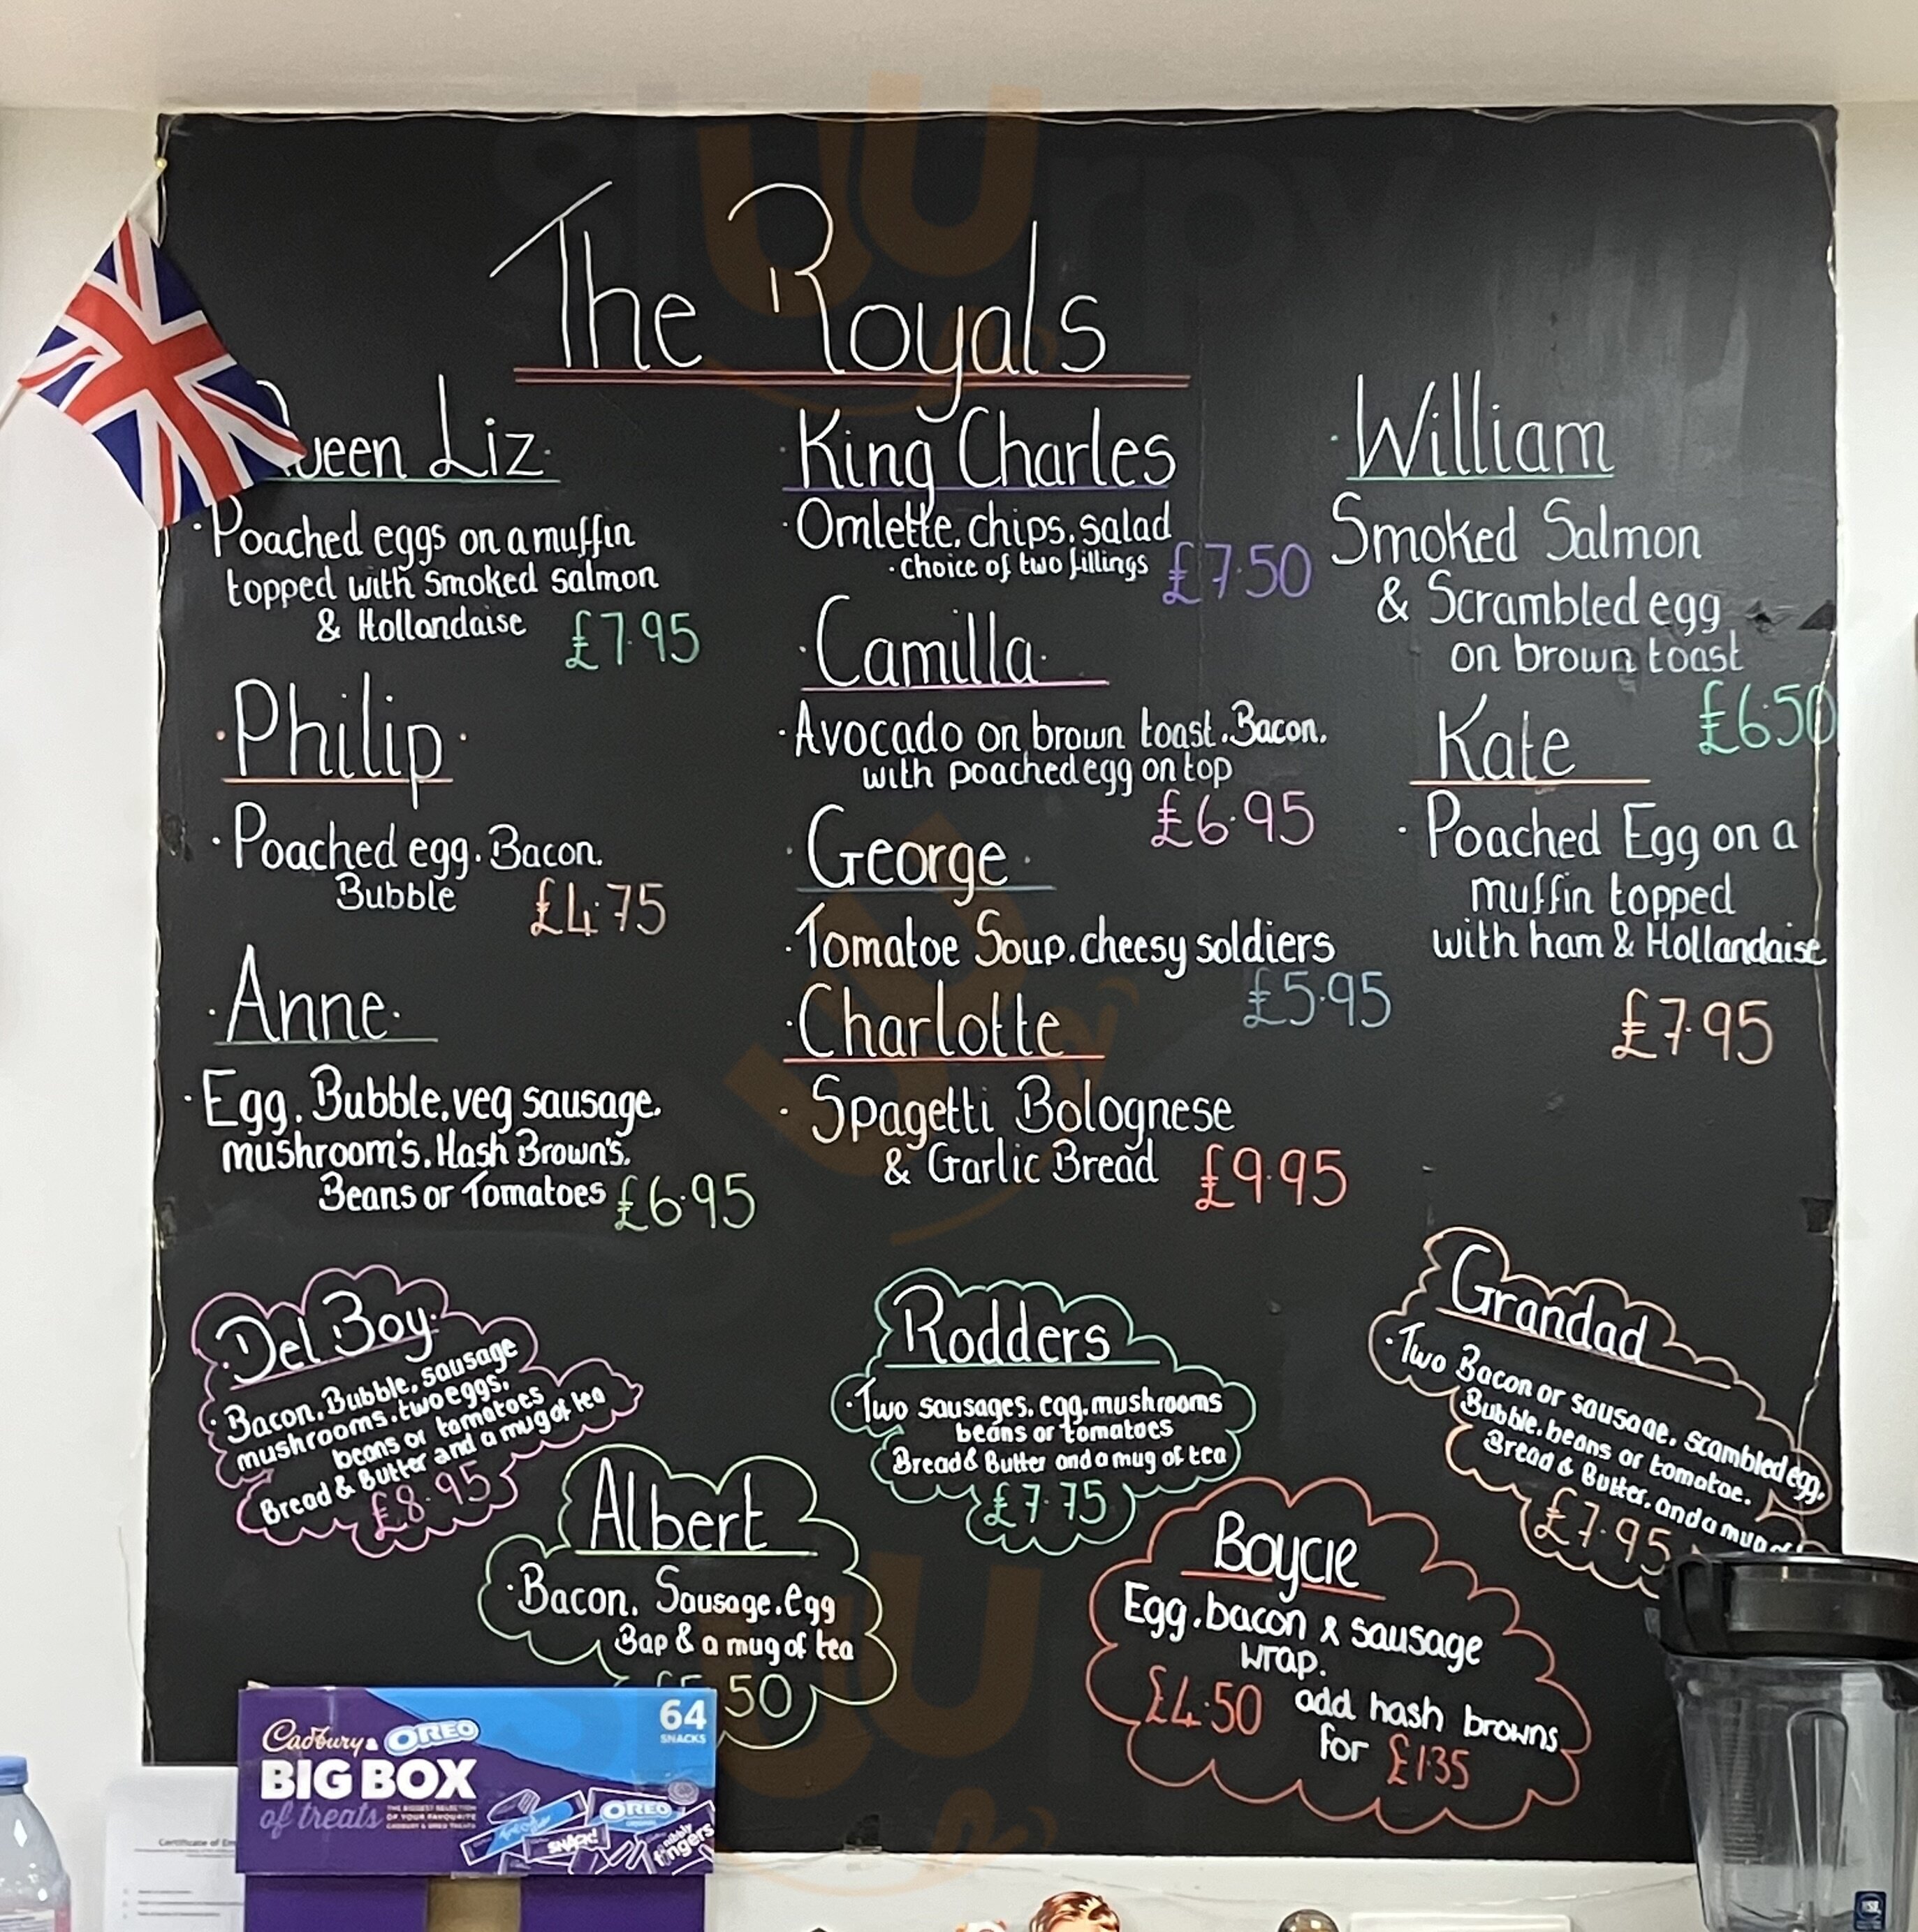 The Royals
Queen Liz
Poached eggs on a muffin
topped with smoked salmon
& Hollandaise £7.95
Philip
Poached egg. Bacon.
Bubble £4.75
Anne
Egg. Bubble. veg sausage.
mushroom's. Hash Brown's.
Beans or Tomatoes £6.95
King Charles
Omlette. chips. salad
choice of two fillings £7.50
Camilla
Avocado on brown toast. Bacon.
with poached egg on top
£6.95
George
Tomatoe Soup. cheesy soldiers
£5.95
Charlotte
Spagetti Bolognese
& Garlic Bread £9.95
William
Smoked Salmon
& Scrambled egg
on brown toast
£6.50
Kate
Poached Egg on a
muffin topped
with ham & Hollandaise
£7.95
Del Boy
Bacon. Bubble. sausage
mushrooms. two eggs.
beans or tomatoes
Bread & Butter and a mug of tea
£8.95
Albert
Bacon. Sausage. egg
Bap & a mug of tea
£5.50
Rodders
Two sausages. egg. mushrooms
beans or tomatoes
Bread & Butter and a mug of tea
£7.75
Boycie
Egg. bacon & sausage
wrap.
£4.50 add hash browns
for £1.35
Grandad
Two Bacon or sausage. scambled egg.
Bubble. beans or tomatoe.
Bread & Butter. and a mug of
£7.95
Cadbury & OREO
BIG BOX
of treats
THE BIGGEST SELECTION
OF YOUR FAVOURITE
CADBURY & OREO TREATS
64
SNACKS
OREO
SNACK!
nibbly
fingers
sluurpy
Certificate of Em
NSF